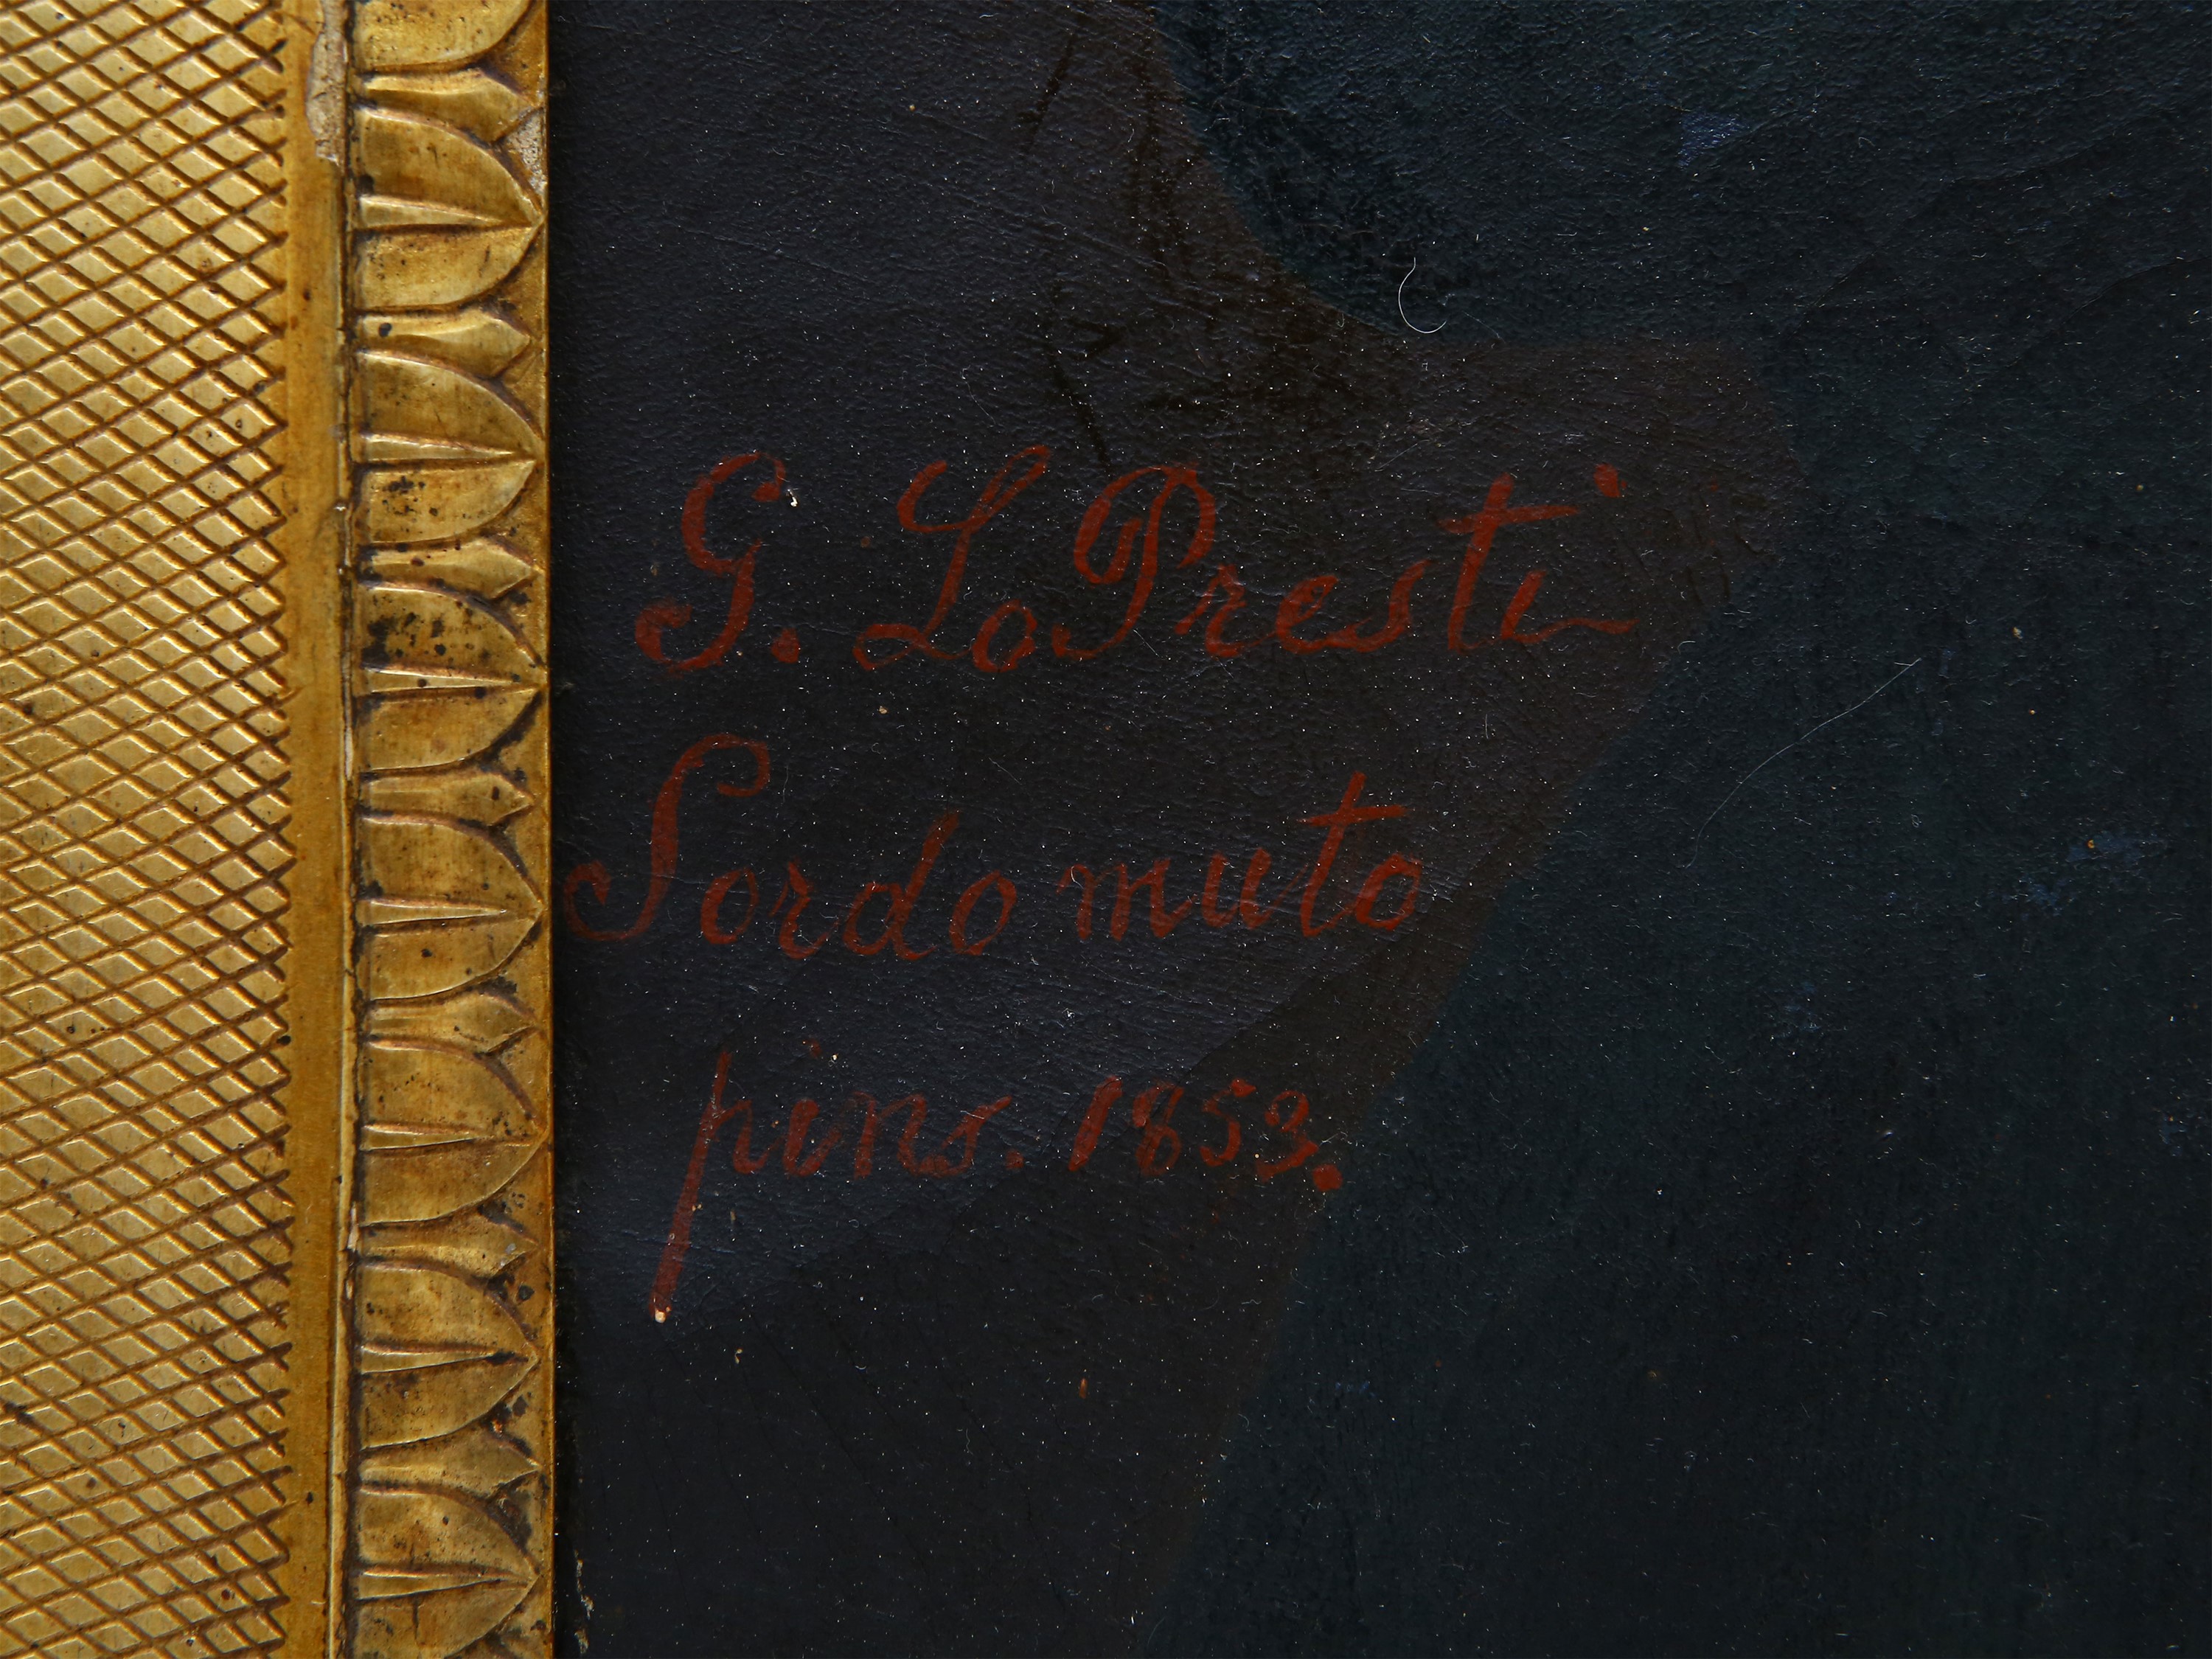 G. Lo Presti
Sordo muto
pins. 1853.